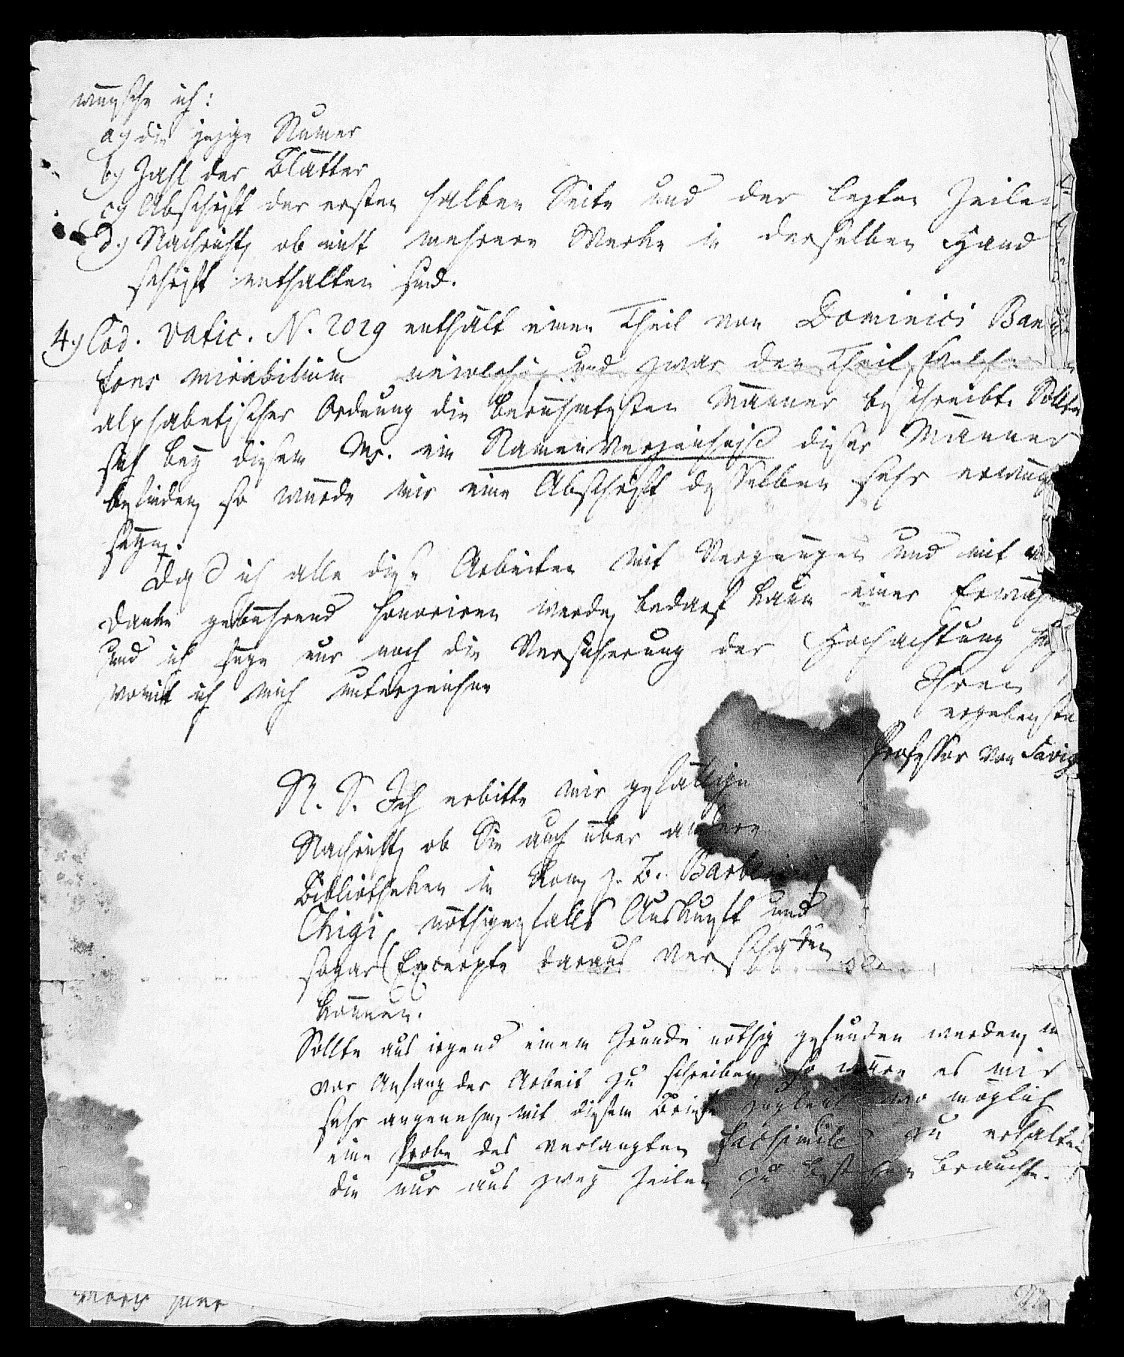 wünsche ich:
a) die jezige Numer
b) Zahl der Blätter
c) Abschrift der ersten halben Seite und der lezten Zeilen
d) Nachricht, ob mit mehrere Werke in derselben Hand
schrift enthalten sind.
4.) Cod. Vatic. N. 2029 enthält einen Theil von Dominici Ban
fons mirabilium und zwar den Theil, welcher
alphabetischer Ordnung die berühmtesten Männer beschreibt. Sollte
sich bey diesem Ms. ein Namenverzeichniß dieser Männer
befinden, so würde mir eine Abschrift desselben sehr erwünscht
seyn.
Daß ich alle diese Arbeiten mit Vergnügen und mit
Danke gebührend honoriren werde, bedarf kaum einer Erwähn
und ich füge nur noch die Versicherung der Hochachtung hin
womit ich mich unterzeichne
Ihren
ergebensten
Professor von Savig
N. S. Ich erbitte mir gefällige
Nachricht, ob Sie auch über andere
Bibliotheken in Rom, z. B. Barberini
Chigi, nöthigenfalls Auskunft und
sogar Excerpte daraus verschaffen
können.
Sollte aus irgend einem Grunde nöthig gefunden werden, m
vor Anfang der Arbeit zu schreiben, so wäre es mir
sehr angenehm, mit diesem Briefe zugleich wo möglich
eine Probe des verlangten Facsimile zu erhalten
die nur aus zwey Zeilen zu bestehen brauchte.